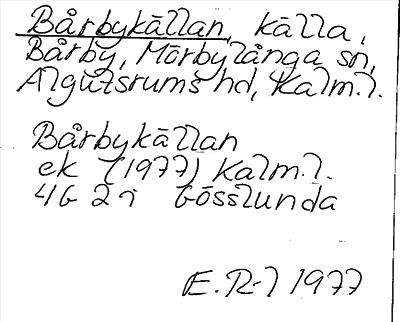 Bårbykällan, källa,
Bårby, Mörbylånga sn,
Algutsrums hd, Kalm.l.
Bårbykällan
ek (1977) Kalm.l.
4G 2i Gösslunda
E.R-l 1977